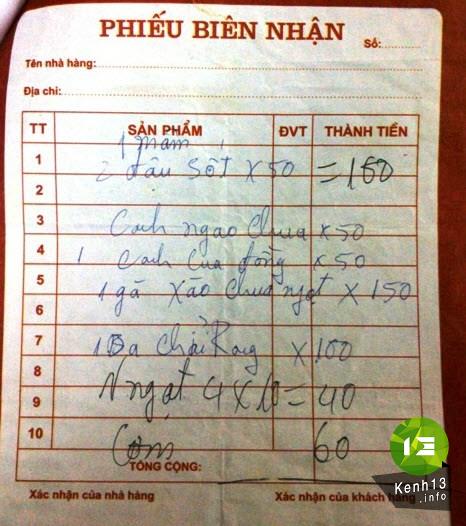 PHIẾU BIÊN NHẬN
Số:
Tên nhà hàng:
Địa chỉ:
TT SẢN PHẨM ĐVT THÀNH TIỀN
1 mắm
1
2 đậu sốt x 50 = 150
2
3
Canh ngao chua x 50
4
1 canh cua đồng x 50
5
1 gà xào chua ngọt x 150
6
7
1 Ba chỉ Rang x 100
8
N ngọt 4 x 10 = 40
9
10
Cơm 60
TỔNG CỘNG:
Xác nhận của nhà hàng Xác nhận của khách hàng
13
Kenh13
.info